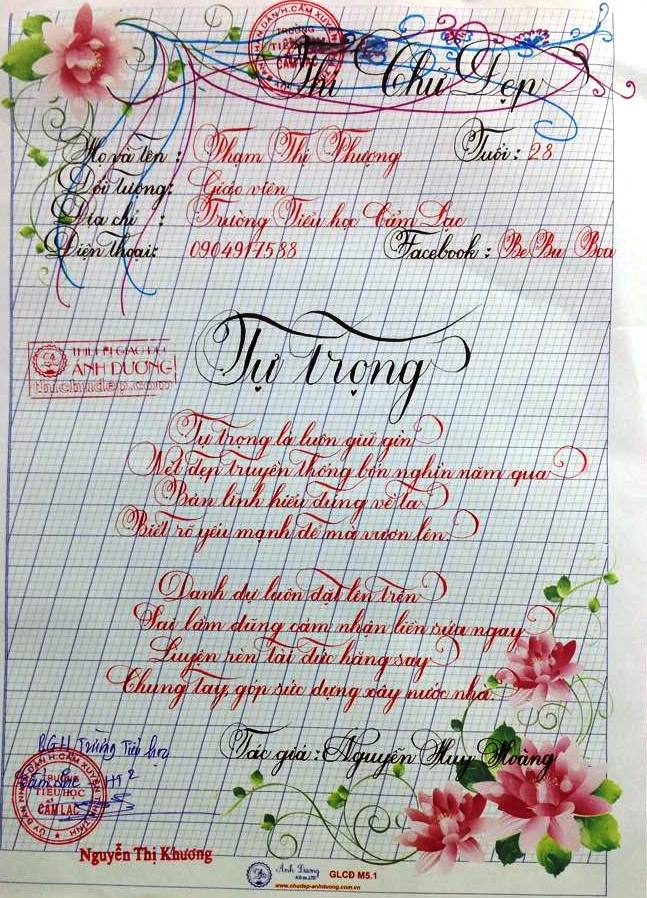 Thi Chữ Đẹp
Họ và tên : Phạm Thị Phượng Tuổi : 28
Đối tượng: Giáo viên
Địa chỉ : Trường Tiểu học Cẩm Lạc
Điện thoại: 0904917588 Facebook : Be Bu Boa
Tự trọng
ÁNH DƯƠNG
thichudep.com
Tự trọng là luôn giữ gìn
Nét đẹp truyền thống bốn nghìn năm qua
Bản lĩnh hiểu đúng về ta
Biết rõ yếu mạnh để mà vươn lên.
Danh dự luôn đặt lên trên
Sai lầm dũng cảm nhận liền sửa ngay
Luyện rèn tài đức hăng say
Chung tay góp sức dựng xây nước nhà.
Tác giả : Nguyễn Huy Hoàng
BGH Trường Tiểu học
TRƯỜNG
TIỂU HỌC
CẨM LẠC
Nguyễn Thị Khương
Ánh Dương
GLCĐ M5.1
www.chudep-anhduong.com.vn